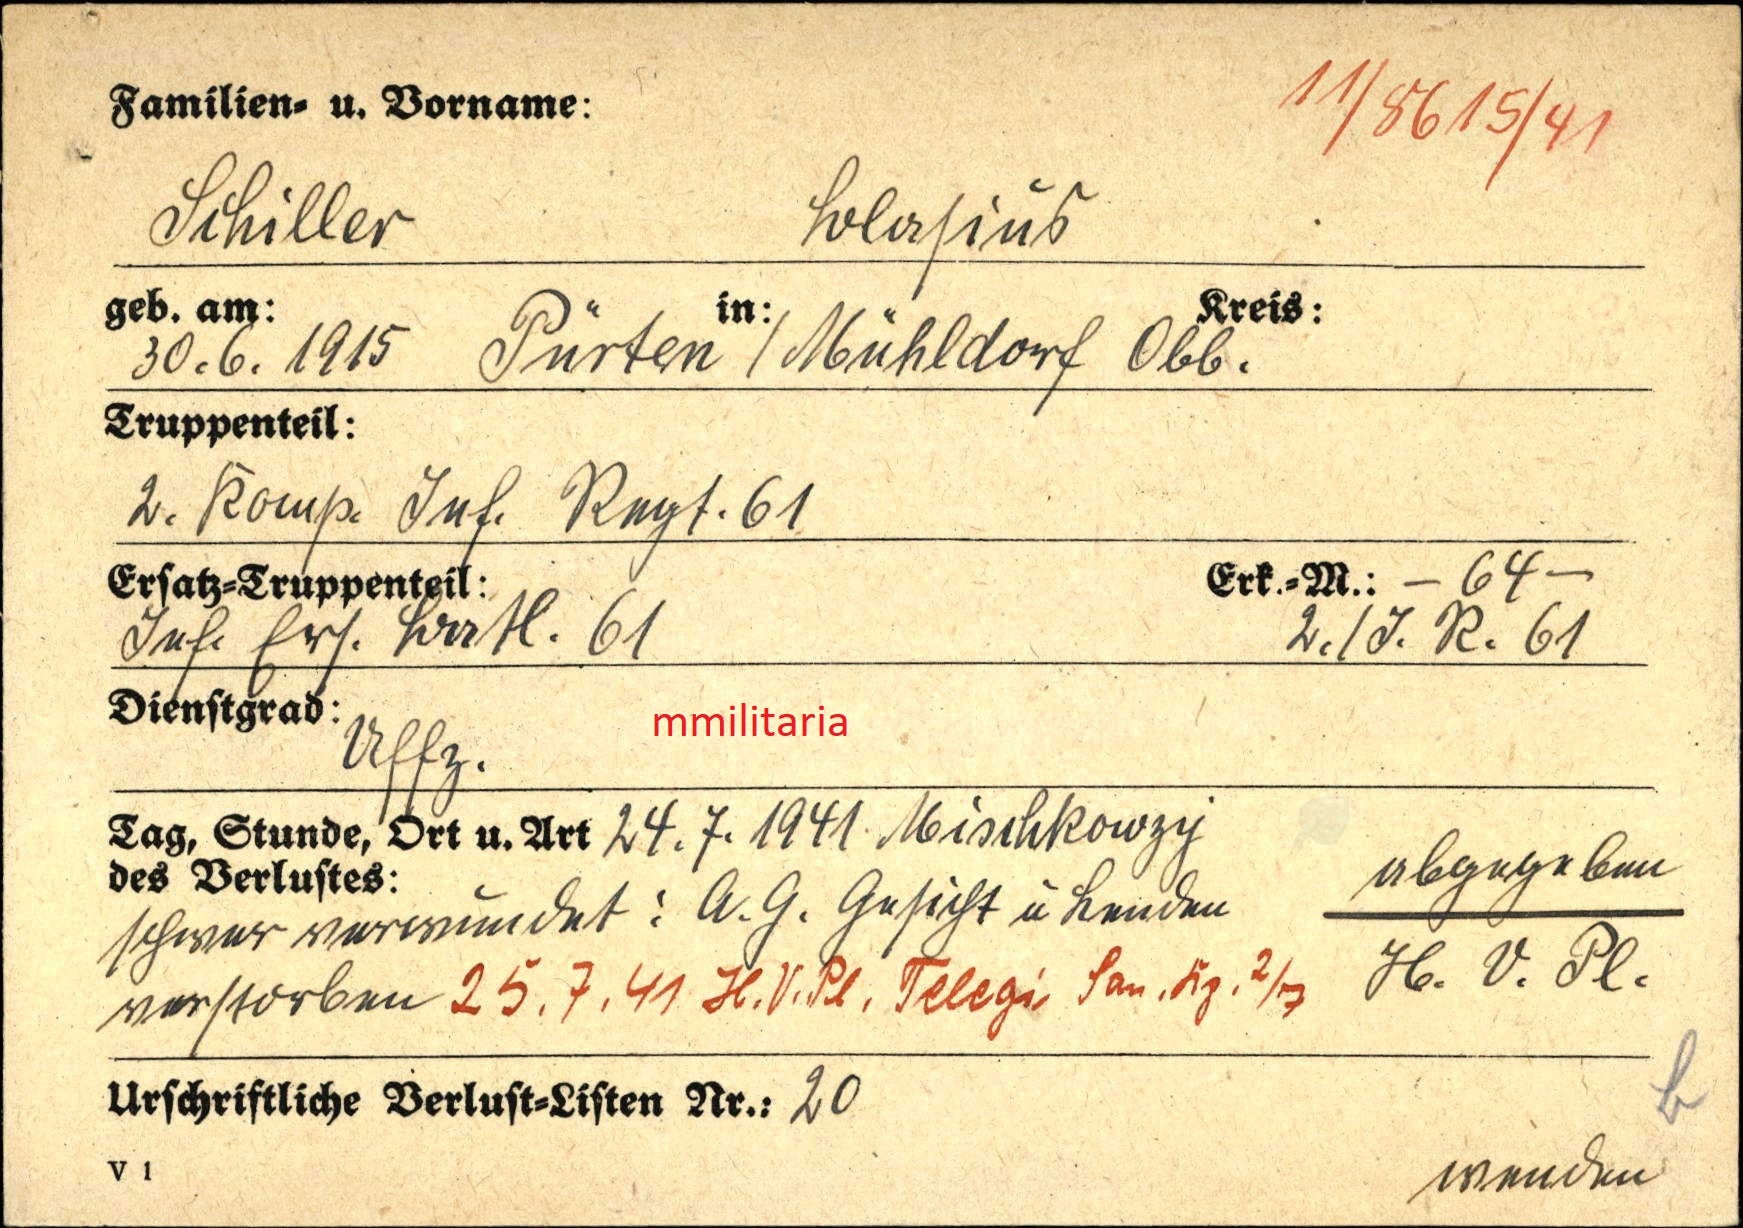 11/8615/41
Familien- u. Vorname:
Schiller Blasius
geb. am: in: Kreis:
30.6. 1915 Pürten / Mühldorf Obb.
Truppenteil:
2. Komp. Inf. Regt. 61
Ersatz-Truppenteil: Erk.-M.: – 64 –
Inf. Ers. Batl. 61 2./J. R. 61
Dienstgrad:
Uffz.
mmilitaria
Tag, Stunde, Ort u. Art 24. 7. 1941 Mischkowzy
des Verlustes:
abgegeben
schwer verwundet: A. G. Gesicht u Lenden
verstorben 25. 7. 41 H.V.Pl. Telegi San. Kp. 2/7
H. V. Pl.
Urschriftliche Verlust-Listen Nr.: 20
V 1
wenden